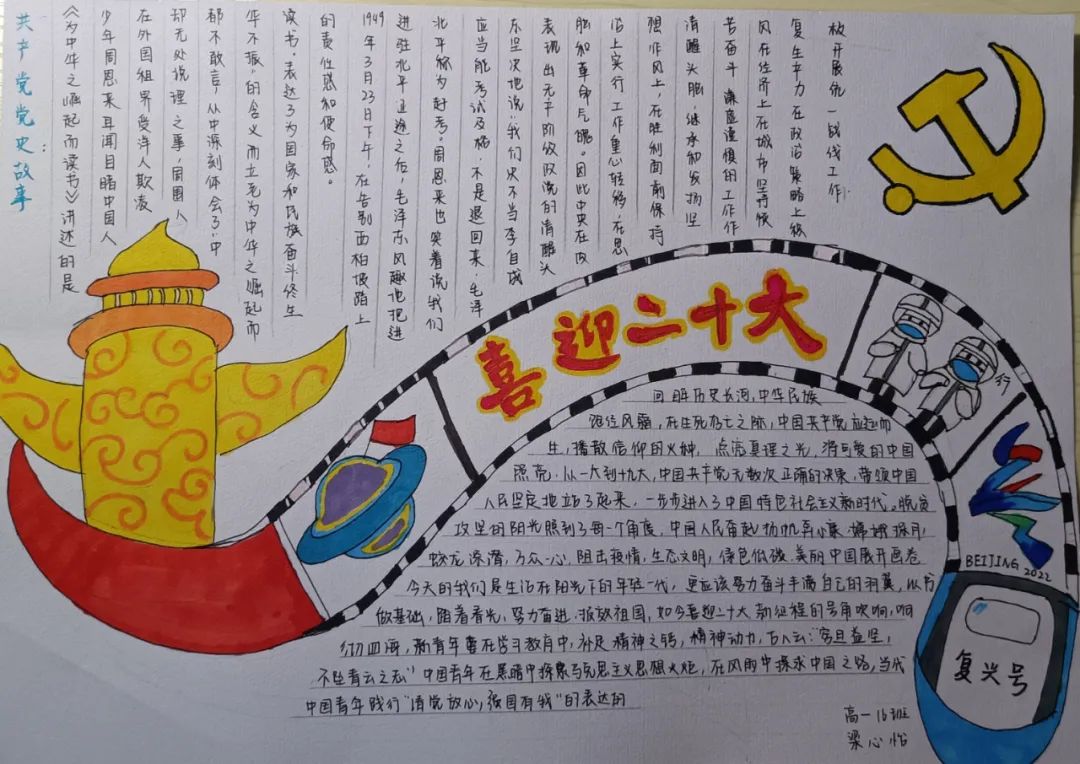 共产党党史故事:
《为中华之崛起而读书》讲述的是
少年周恩来耳闻目睹中国人
在外国租界受洋人欺凌
却无处说理之事,周围人
都不敢言,从中深刻体会了“中
华不振”的含义而立志为中华之崛起而
读书。表达了为国家和民族奋斗终生
的责任感和使命感。
1949年3月23日下午,在告别西柏坡踏上
进驻北平道途之后,毛泽东风趣地把进
北平称为赶考。周恩来也笑着说我们
应当能考试及格,不是退回来,毛泽
东坚决地说“我们决不当李自成
表现出无产阶级政党的清醒头
脑和革命气魄。因此中央在政
治上实行工作重心转移,在思
想作风上,在胜利面前保持
清醒头脑,继承和发扬坚
苦奋斗谦虚谨慎的工作作
风在经济上在城市坚持恢
复生产力在政治策略上积
极开展统一战线工作.
喜迎二十大
回眸历史长河,中华民族
饱经风霜,在生死存亡之际,中国共产党应运而
生,播散信仰的火种,点亮真理之光,将可爱的中国
照亮.从一大到十九大,中国共产党无数次正确的决策,带领中国
人民坚定地站了起来,一步步进入了中国特色社会主义新时代。脱贫
攻坚的阳光照到了每一个角度,中国人民奋起扬帆奔小康,嫦娥探月,
蛟龙深潜,万众一心,阻击疫情,生态文明,绿色低碳.美丽中国展开画卷
今天的我们是生活在阳光下的年轻一代,更应该努力奋斗丰满自己的羽翼,以书
做基础,踏着春光,努力奋进.报效祖国,如今喜迎二十大新征程的号角吹响,响
彻四海,新青年要在学习教育中,补足精神之钙,精神动力,古人云:“穷且益坚,
不坠青云之志”中国青年在黑暗中探索马克思主义思想火炬,在风雨中探求中国之路,当代
中国青年践行“请党放心,强国有我”的表达的
行
BEIJING 2022
复兴号
高一16班
梁心怡